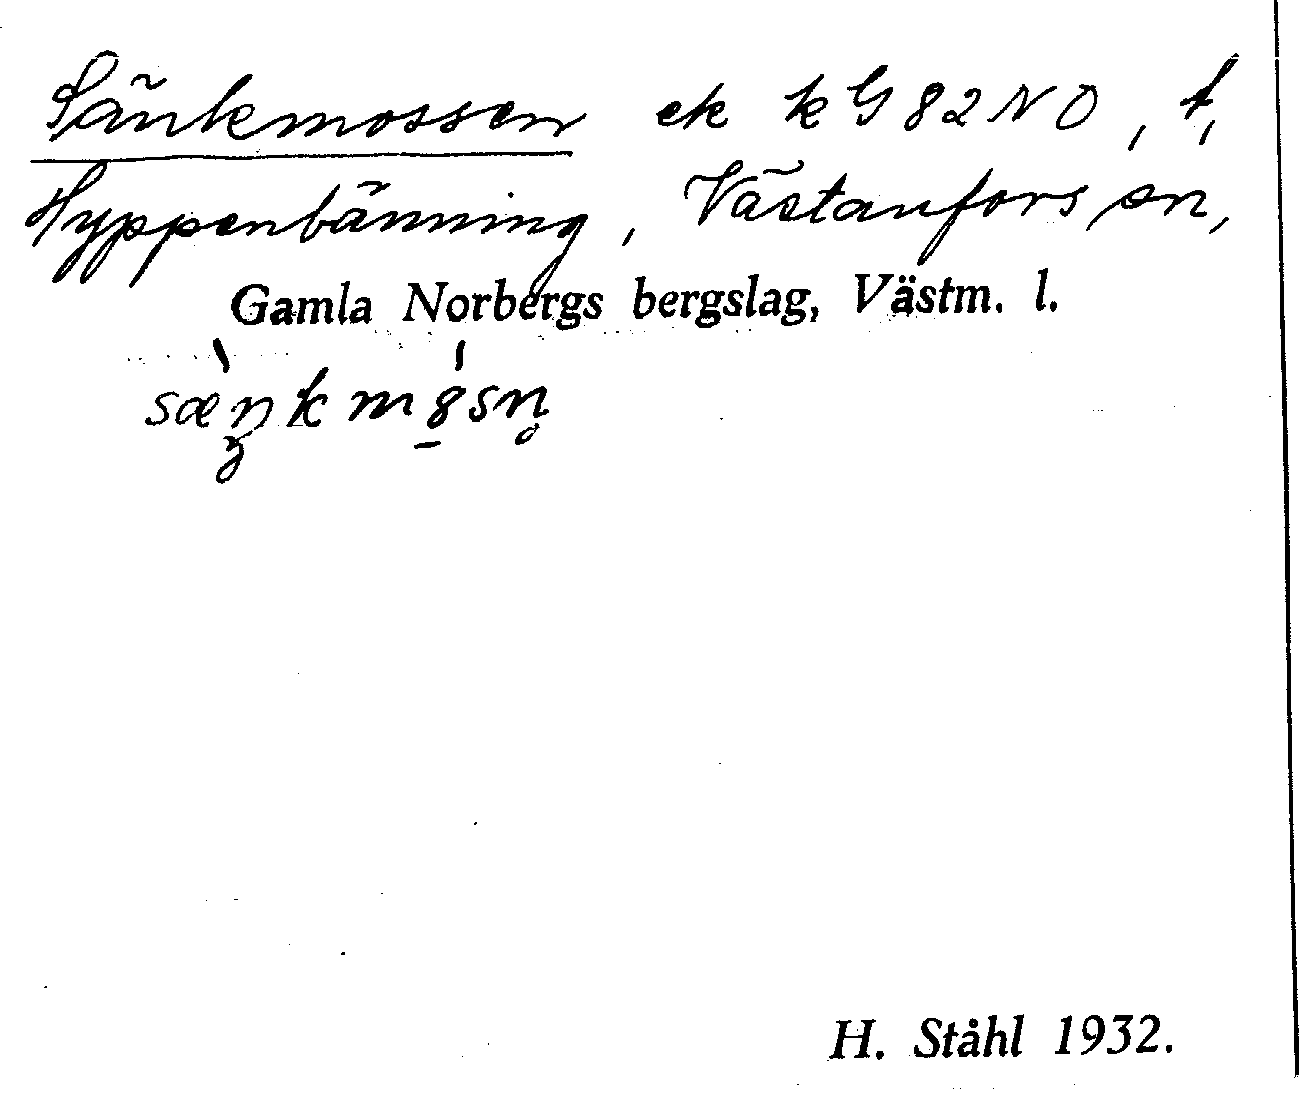 Sänkmossen ek kG82NO, t,
Hyppenbänning, Västanfors sn,
Gamla Norbergs bergslag, Västm. l.
sæ̀ŋkmó̱sn̥
H. Ståhl 1932.